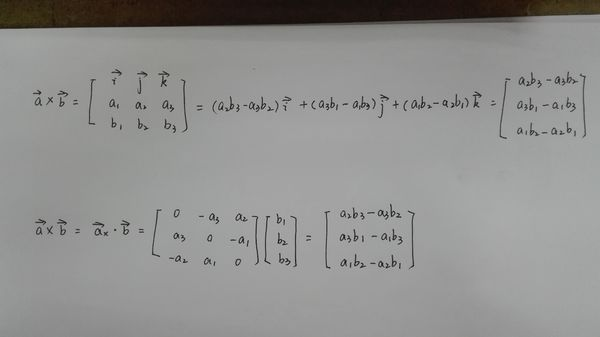 $\vec{a} \times \vec{b} = \begin{bmatrix} \vec{i} & \vec{j} & \vec{k} \\ a_1 & a_2 & a_3 \\ b_1 & b_2 & b_3 \end{bmatrix} = (a_2b_3 - a_3b_2)\vec{i} + (a_3b_1 - a_1b_3)\vec{j} + (a_1b_2 - a_2b_1)\vec{k} = \begin{bmatrix} a_2b_3 - a_3b_2 \\ a_3b_1 - a_1b_3 \\ a_1b_2 - a_2b_1 \end{bmatrix}$
$\vec{a} \times \vec{b} = \vec{a}_\times \cdot \vec{b} = \begin{bmatrix} 0 & -a_3 & a_2 \\ a_3 & 0 & -a_1 \\ -a_2 & a_1 & 0 \end{bmatrix} \begin{bmatrix} b_1 \\ b_2 \\ b_3 \end{bmatrix} = \begin{bmatrix} a_2b_3 - a_3b_2 \\ a_3b_1 - a_1b_3 \\ a_1b_2 - a_2b_1 \end{bmatrix}$